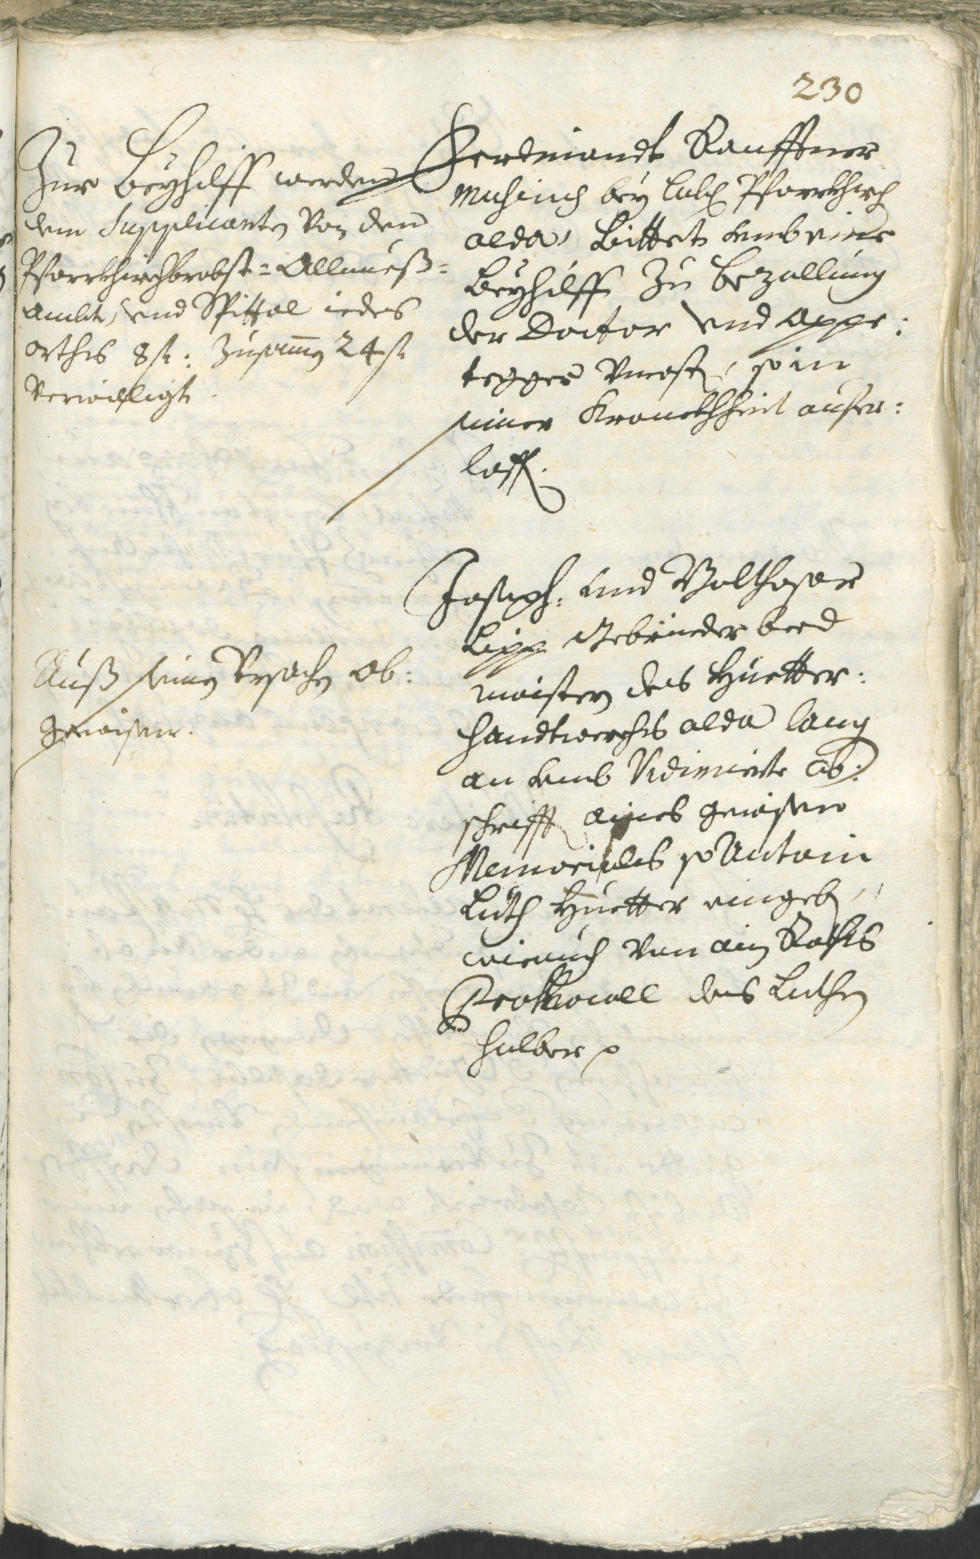 230
Zur Beyhilff werden
dem Supplicanten von den
Pfarrkhirchbrobst- Allmueß-
ambt, und Spittal iedes
orths 8 fl: Zusamen 24 fl
verwilligt.
Ferdinandt Rauffner
Musicus bey lobl Pfarrkhirch
alda, bittet umb eine
Beyhilff zu bezallung
der Doctor und Appo:
tegger , so in
seiner Kranckhheit aufer:
loff.
Auß seinen Ursachen ab:
gewisen.
Joseph: und Balthasar
Lipp Gebrüeder beed
maister des Huetter:
handtwerchs alda lang
an umb Vidimirte ab:
schrifft aines gewisen
Memorials so Antoni
Luth Huetter eingeben,
wie auch von ain Raths
Prothocoll des Luthen
halber